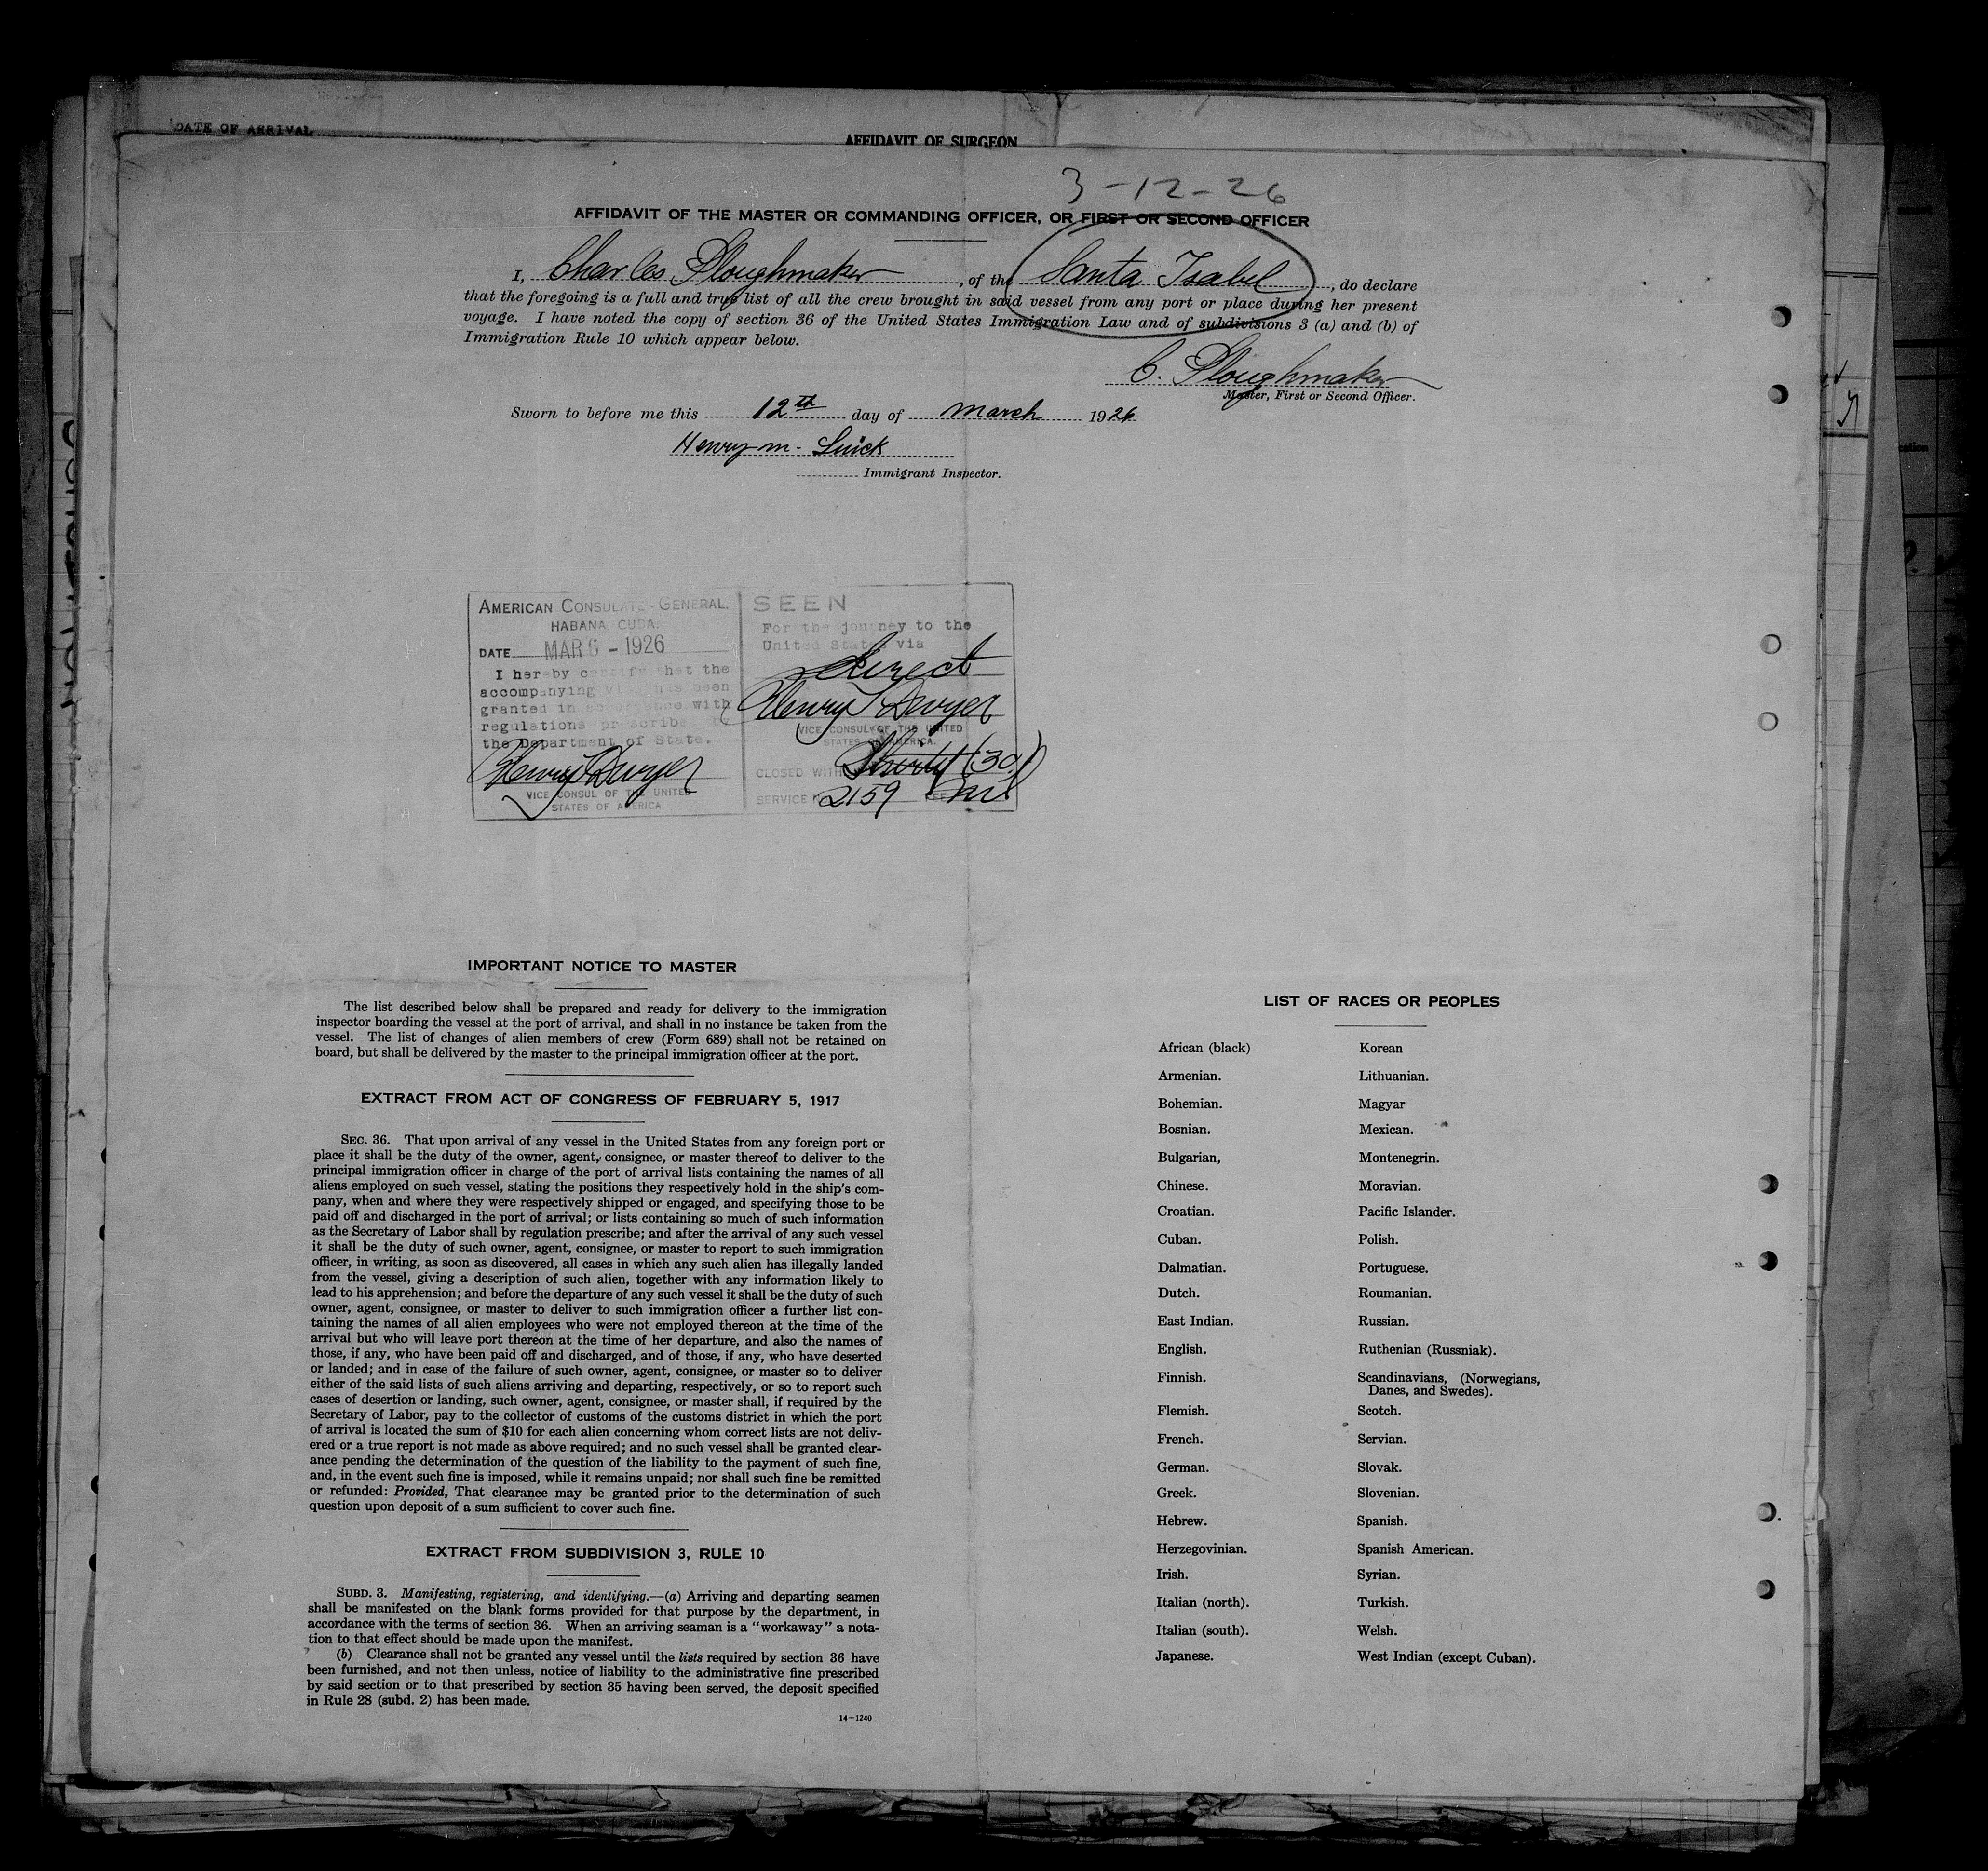 DATE OF ARRIVAL
AFFIDAVIT OF SURGEON
3-12-26
AFFIDAVIT OF THE MASTER OR COMMANDING OFFICER, OR FIRST OR SECOND OFFICER
I, Charles Ploughmaker, of the Santa Isabel, do declare
that the foregoing is a full and true list of all the crew brought in said vessel from any port or place during her present
voyage. I have noted the copy of section 36 of the United States Immigration Law and of subdivisions 3 (a) and (b) of
Immigration Rule 10 which appear below.
C. Ploughmaker
Master, First or Second Officer.
Sworn to before me this 12th day of March 1926
Henry M.
Immigrant Inspector.
AMERICAN CONSULATE-GENERAL.
HABANA, CUBA.
DATE MAR 6 - 1926
I hereby certify that the
accompanying visa has been
granted in accordance with
regulations prescribed by
the Department of State.
Henry T Dwyer
VICE CONSUL OF THE UNITED
STATES OF AMERICA
SEEN
For the journey to the
United States via
direct
Henry T Dwyer
VICE CONSUL OF THE UNITED
STATES OF AMERICA.
CLOSED WITH Thirty (30)
SERVICE No 2159 FEE Nil
IMPORTANT NOTICE TO MASTER
The list described below shall be prepared and ready for delivery to the immigration
inspector boarding the vessel at the port of arrival, and shall in no instance be taken from the
vessel. The list of changes of alien members of crew (Form 689) shall not be retained on
board, but shall be delivered by the master to the principal immigration officer at the port.
EXTRACT FROM ACT OF CONGRESS OF FEBRUARY 5, 1917
SEC. 36. That upon arrival of any vessel in the United States from any foreign port or
place it shall be the duty of the owner, agent, consignee, or master thereof to deliver to the
principal immigration officer in charge of the port of arrival lists containing the names of all
aliens employed on such vessel, stating the positions they respectively hold in the ship's com-
pany, when and where they were respectively shipped or engaged, and specifying those to be
paid off and discharged in the port of arrival; or lists containing so much of such information
as the Secretary of Labor shall by regulation prescribe; and after the arrival of any such vessel
it shall be the duty of such owner, agent, consignee, or master to report to such immigration
officer, in writing, as soon as discovered, all cases in which any such alien has illegally landed
from the vessel, giving a description of such alien, together with any information likely to
lead to his apprehension; and before the departure of any such vessel it shall be the duty of such
owner, agent, consignee, or master to deliver to such immigration officer a further list con-
taining the names of all alien employees who were not employed thereon at the time of the
arrival but who will leave port thereon at the time of her departure, and also the names of
those, if any, who have been paid off and discharged, and of those, if any, who have deserted
or landed; and in case of the failure of such owner, agent, consignee, or master so to deliver
either of the said lists of such aliens arriving and departing, respectively, or so to report such
cases of desertion or landing, such owner, agent, consignee, or master shall, if required by the
Secretary of Labor, pay to the collector of customs of the customs district in which the port
of arrival is located the sum of $10 for each alien concerning whom correct lists are not deliv-
ered or a true report is not made as above required; and no such vessel shall be granted clear-
ance pending the determination of the question of the liability to the payment of such fine,
and, in the event such fine is imposed, while it remains unpaid; nor shall such fine be remitted
or refunded: Provided, That clearance may be granted prior to the determination of such
question upon deposit of a sum sufficient to cover such fine.
EXTRACT FROM SUBDIVISION 3, RULE 10
SUBD. 3. Manifesting, registering, and identifying.—(a) Arriving and departing seamen
shall be manifested on the blank forms provided for that purpose by the department, in
accordance with the terms of section 36. When an arriving seaman is a "workaway" a nota-
tion to that effect should be made upon the manifest.
(b) Clearance shall not be granted any vessel until the lists required by section 36 have
been furnished, and not then unless, notice of liability to the administrative fine prescribed
by said section or to that prescribed by section 35 having been served, the deposit specified
in Rule 28 (subd. 2) has been made.
14-1240
LIST OF RACES OR PEOPLES
African (black)
Armenian.
Bohemian.
Bosnian.
Bulgarian,
Chinese.
Croatian.
Cuban.
Dalmatian.
Dutch.
East Indian.
English.
Finnish.
Flemish.
French.
German.
Greek.
Hebrew.
Herzegovinian.
Irish.
Italian (north).
Italian (south).
Japanese.
Korean
Lithuanian.
Magyar
Mexican.
Montenegrin.
Moravian.
Pacific Islander.
Polish.
Portuguese.
Roumanian.
Russian.
Ruthenian (Russniak).
Scandinavians, (Norwegians,
Danes, and Swedes).
Scotch.
Servian.
Slovak.
Slovenian.
Spanish.
Spanish American.
Syrian.
Turkish.
Welsh.
West Indian (except Cuban).